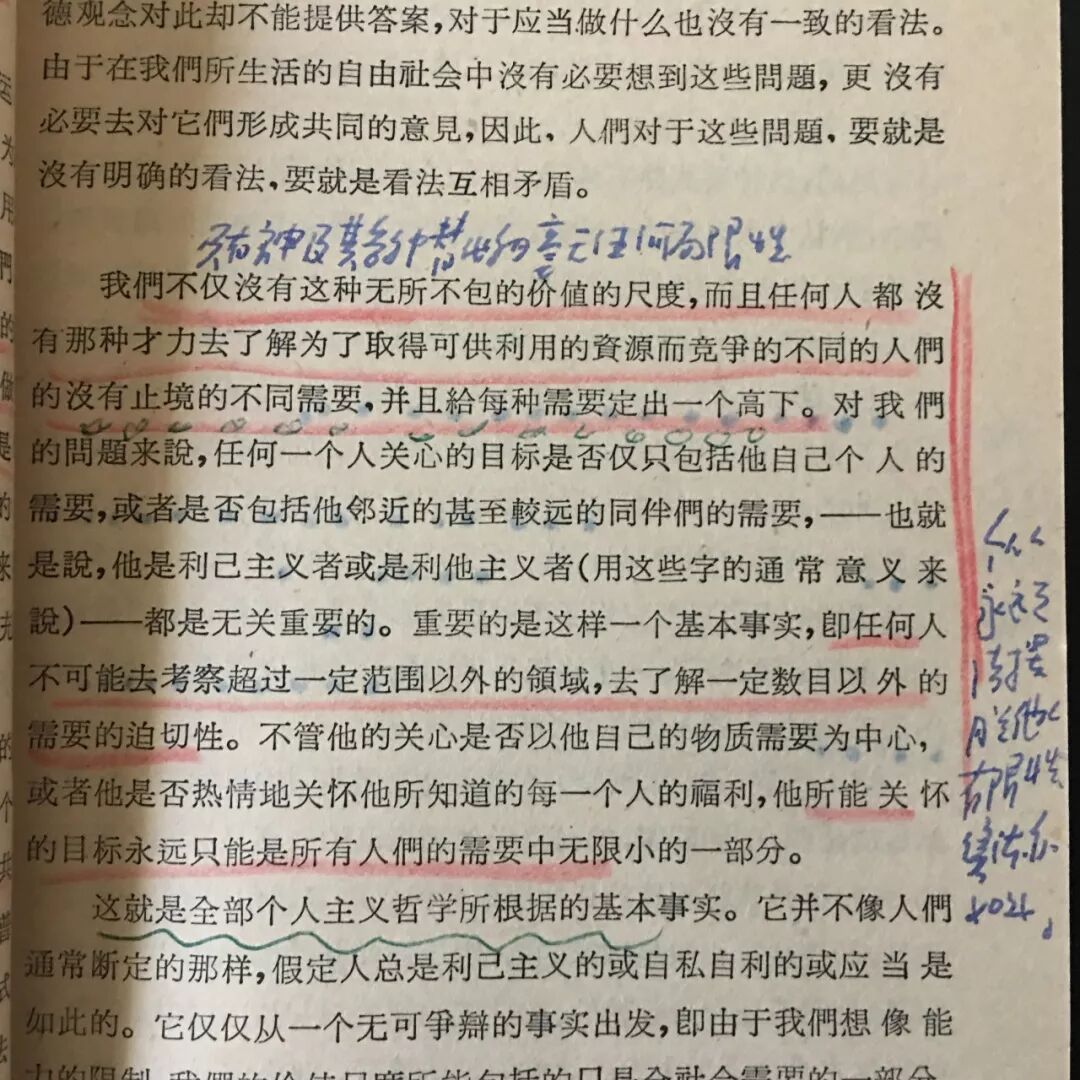 德观念对此却不能提供答案,对于应当做什么也沒有一致的看法。
由于在我們所生活的自由社会中沒有必要想到这些問題,更沒有
必要去对它們形成共同的意見,因此,人們对于这些問題,要就是
沒有明确的看法,要就是看法互相矛盾。
我們不仅沒有这种无所不包的价值的尺度,而且任何人都沒
有那种才力去了解为了取得可供利用的資源而竞爭的不同的人們
的沒有止境的不同需要,并且給每种需要定出一个高下。对我們
的問題来說,任何一个人关心的目标是否仅只包括他自己个人的
需要,或者是否包括他邻近的甚至較远的同伴們的需要,——也就
是說,他是利己主义者或是利他主义者(用这些字的通常意义来
說)——都是无关重要的。重要的是这样一个基本事实,卽任何人
不可能去考察超过一定范围以外的領域,去了解一定数目以外的
需要的迫切性。不管他的关心是否以他自己的物质需要为中心,
或者他是否热情地关怀他所知道的每一个人的福利,他所能关怀
的目标永远只能是所有人們的需要中无限小的一部分。
这就是全部个人主义哲学所根据的基本事实。它并不像人們
通常断定的那样,假定人总是利己主义的或自私自利的或应当是
如此的。它仅仅从一个无可爭辯的事实出发,卽由于我們想像能
力的限制,我們的价值尺度所能包括的只是全社会需要的一部分